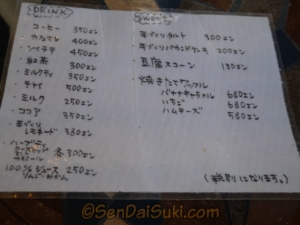 DRINK
・コーヒー 350エン
・カフェラテ 400エン
・ソイラテ 450エン
・紅茶 300エン
・ミルクティ 350エン
・チャイ 500エン
・ミルク 250エン
・ココア 350エン
・手づくりレモネード 380エン
・ハーブティ
各300エン
・100%ジュース 250エン
りんご・みかん
SWEETS
・手づくりタルト 300エン
・手づくりパウンドケーキ 200エン
・豆腐スコーン 130エン
・焼きたてワッフル
バナナキャラメル 680エン
いちご 680エン
ハムチーズ 580エン
(税別になります。)
©SenDaiSuki.com